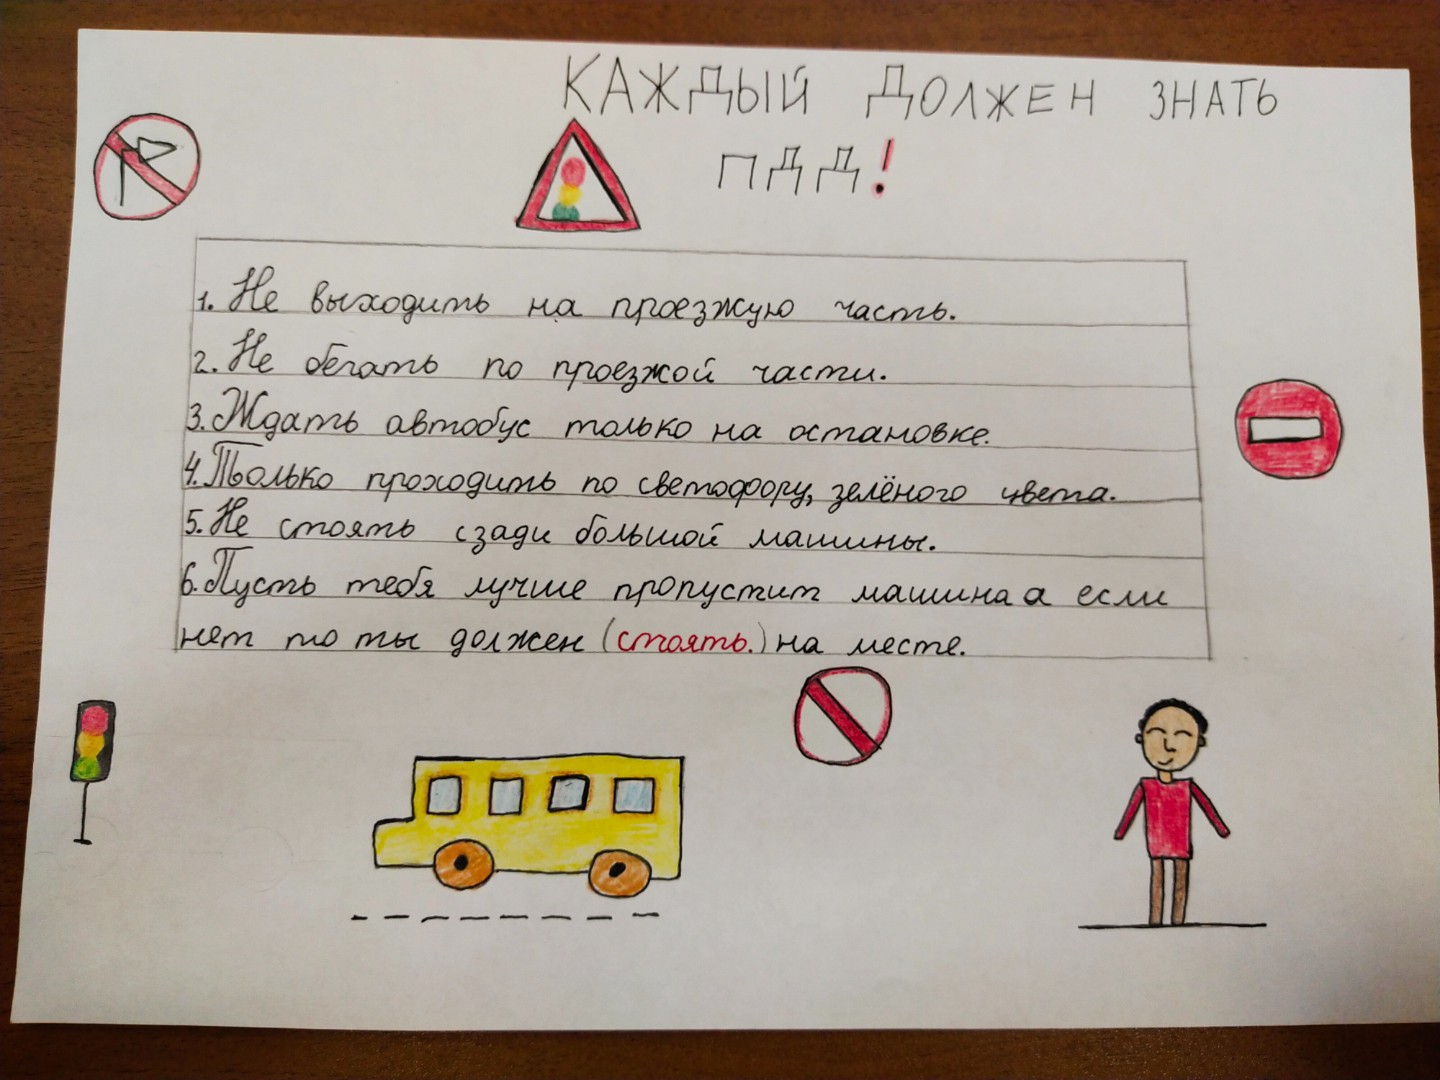 КАЖДЫЙ ДОЛЖЕН ЗНАТЬ
ПДД!
1. Не выходить на проезжую часть.
2. Не бегать по проезжой части.
3. Ждать автобус только на остановке.
4. Только проходить по светофору, зелёного цвета.
5. Не стоять сзади большой машины.
6. Пусть тебя лучше пропустит машина а если
нет то ты должен (стоять.) на месте.